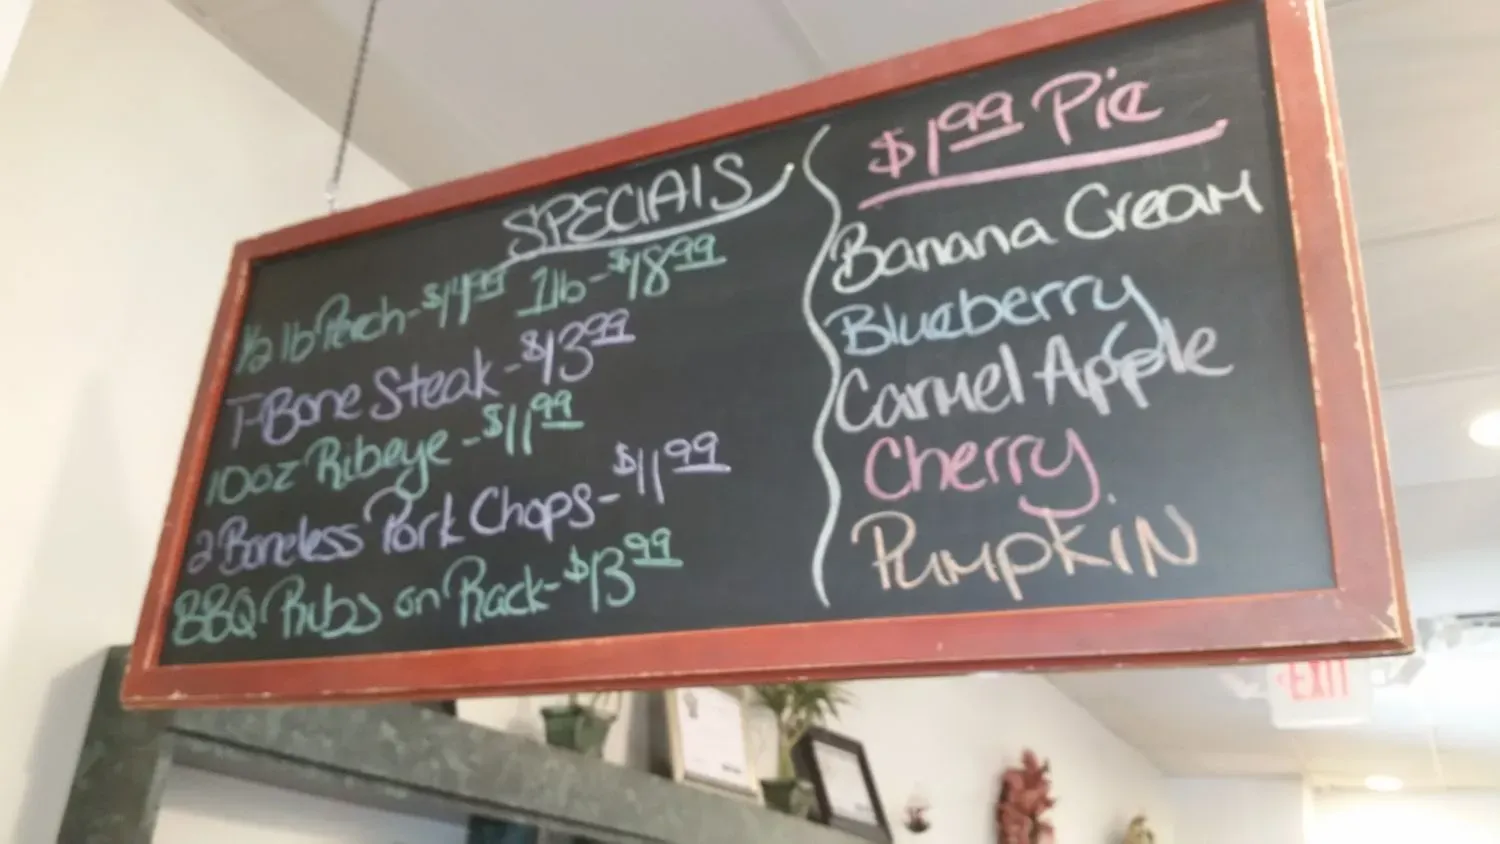 SPECIALS
1/2 lb Perch - $14.99 1lb - $18.99
T-Bone Steak - $13.99
10oz Ribeye - $11.99
2 Boneless Pork Chops - $11.99
BBQ Ribs on Rack - $13.99
$1.99 Pie
Banana Cream
Blueberry
Carmel Apple
Cherry
Pumpkin
EXIT